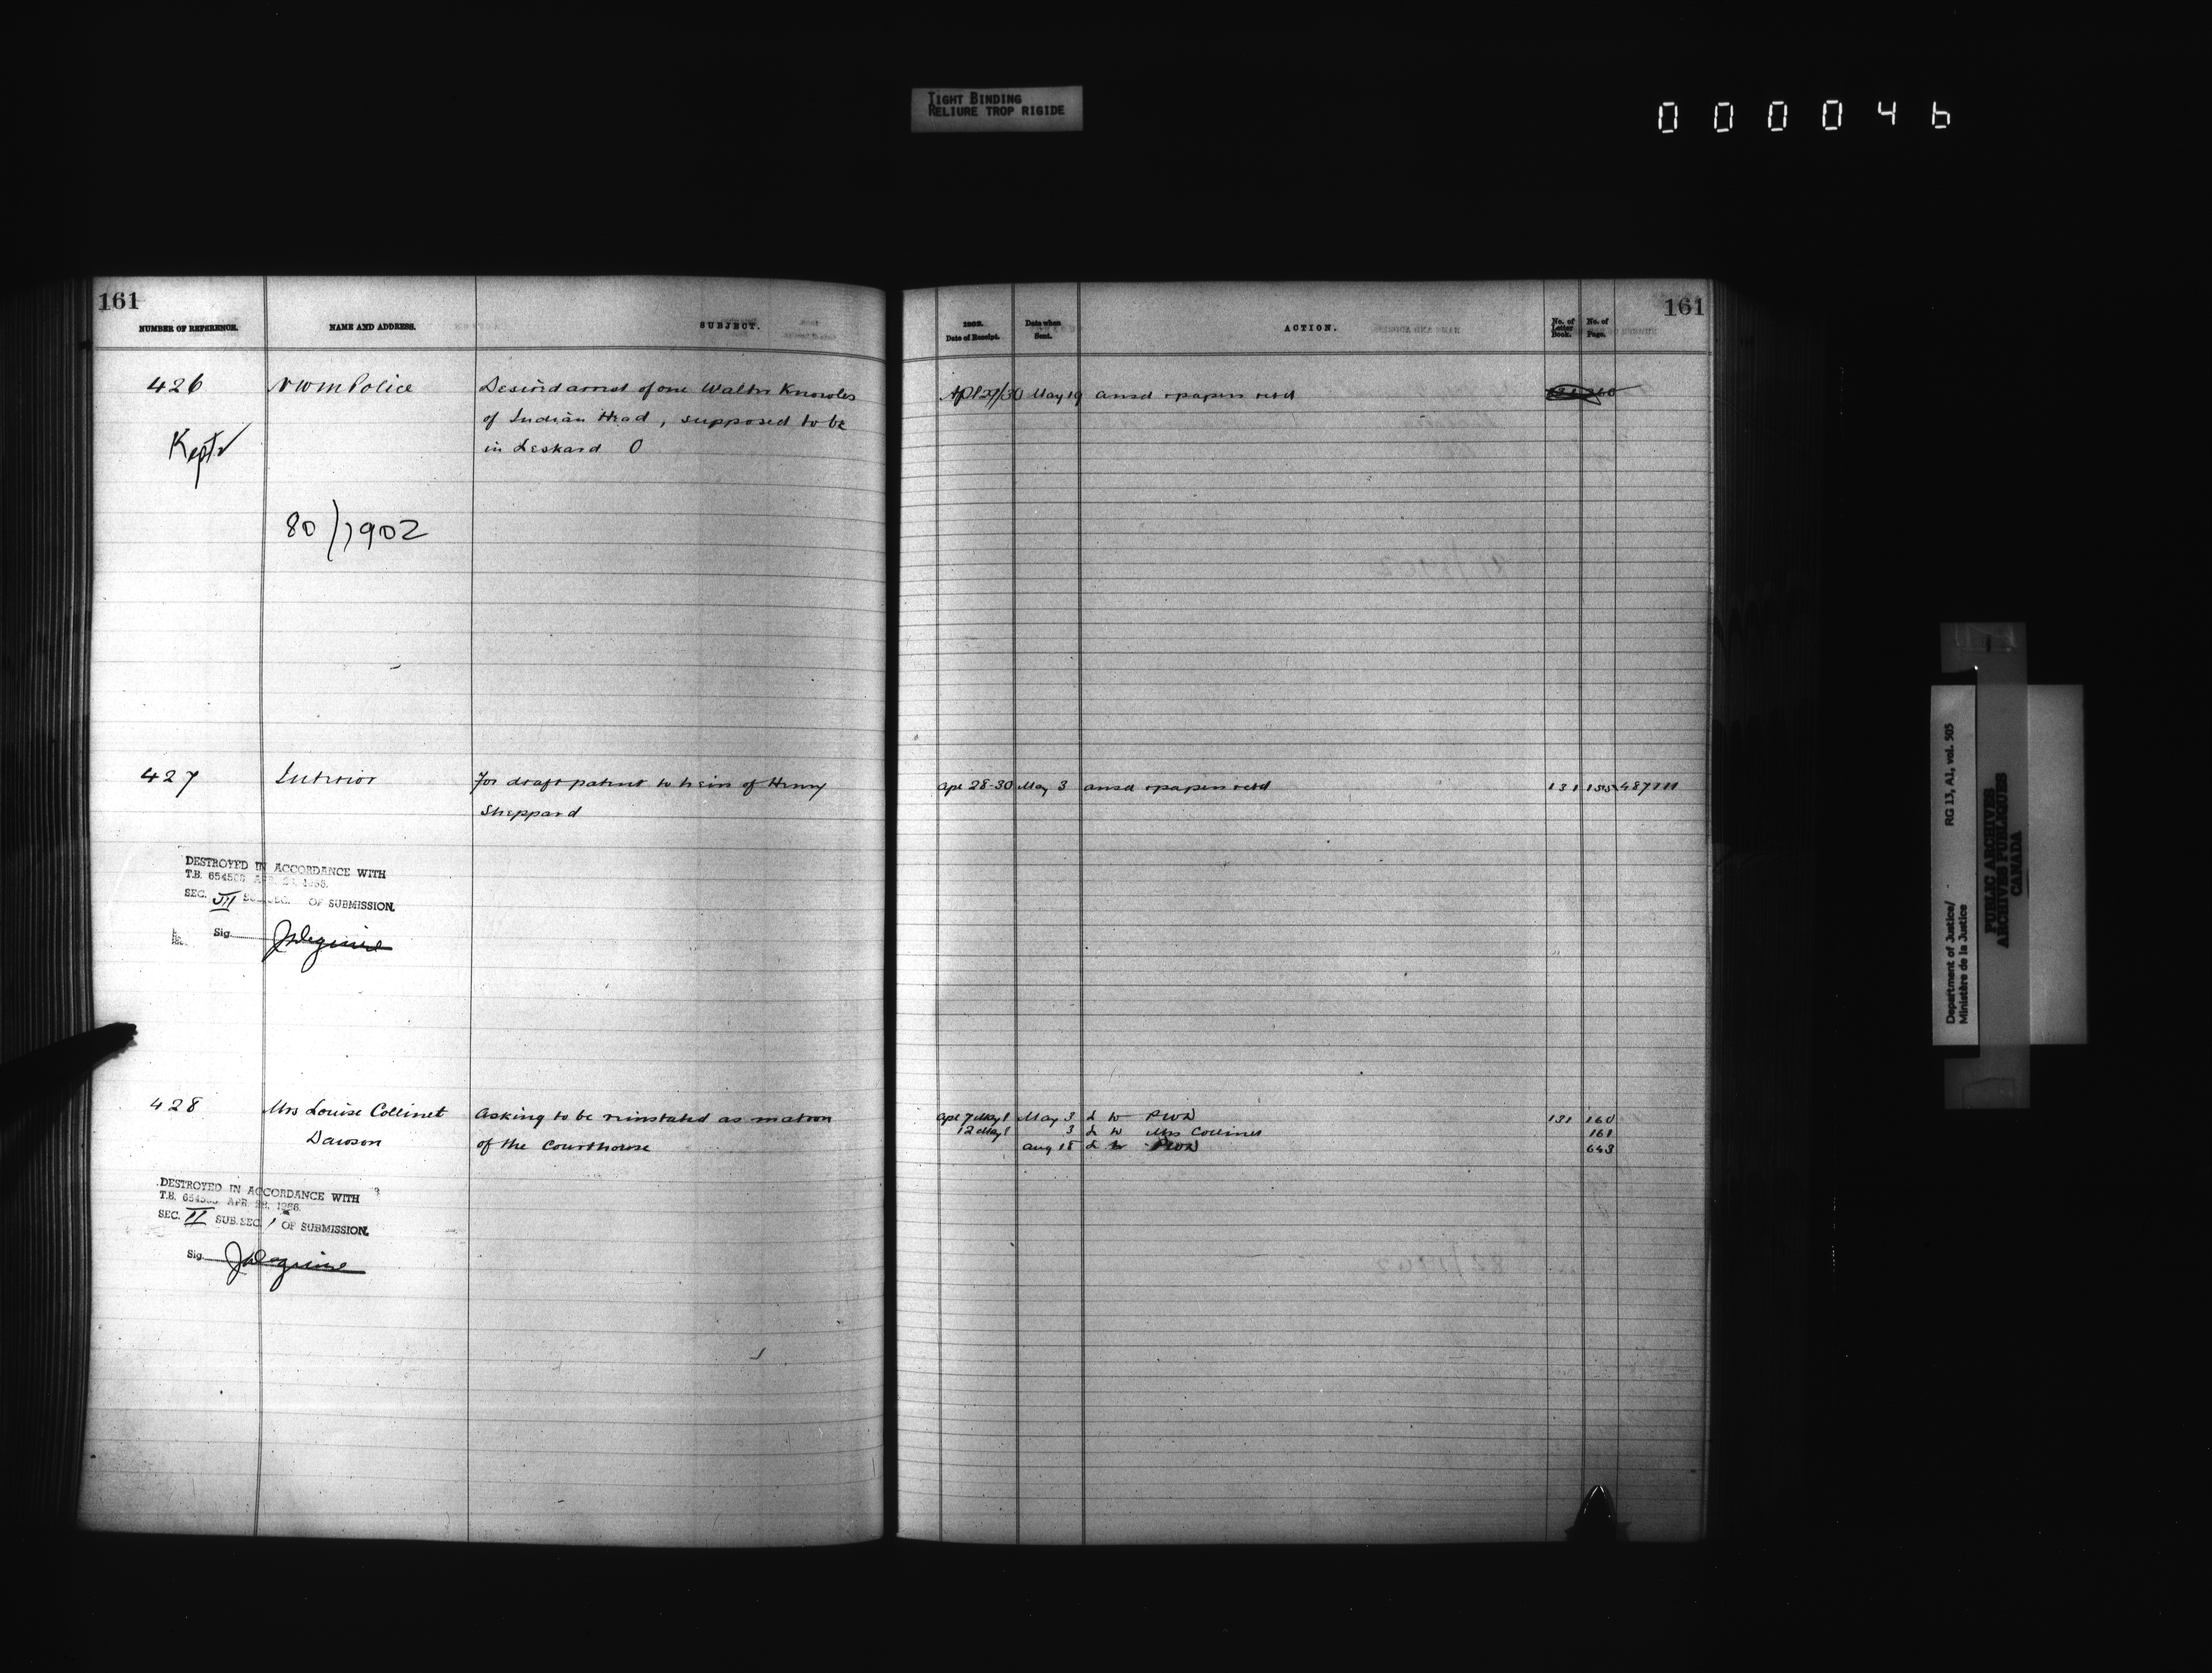 TIGHT BINDING
RELIURE TROP RIGIDE
000046
161
NUMBER OF REFERENCE. NAME AND ADDRESS. SUBJECT.
426 NWM Police Desired arrest of one Walter Knowles
of Indian Head, supposed to be
Kept in Leskard O
80/1902
427 Interior For draft patent to heirs of Henry
Sheppard
DESTROYED IN ACCORDANCE WITH
T.B. 654503 APR. 28, 1966.
SEC. III SUB.SEC. OF SUBMISSION.
Sig.
428 Mrs Louise Collinet Asking to be reinstated as matron
Dawson of the Courthouse
DESTROYED IN ACCORDANCE WITH
T.B. APR. 28, 1966.
SEC. II SUB.SEC. 1 OF SUBMISSION.
Sig.
161
1902. Date of Receipt. Date when Sent. ACTION. No. of Letter Book. No. of Page.
Apl 29/30 May 19 ansd & papers retd
Apl 28-30 May 3 ansd & papers retd 131 155 487111
Apl 7 May 1 May 3 L to PWD 131 160
12 May 1 3 L to Mrs Collinet 161
Aug 18 L to PWD 643
Department of Justice/ RG 13, A1, vol. 505
Ministère de la Justice
PUBLIC ARCHIVES
ARCHIVES PUBLIQUES
CANADA